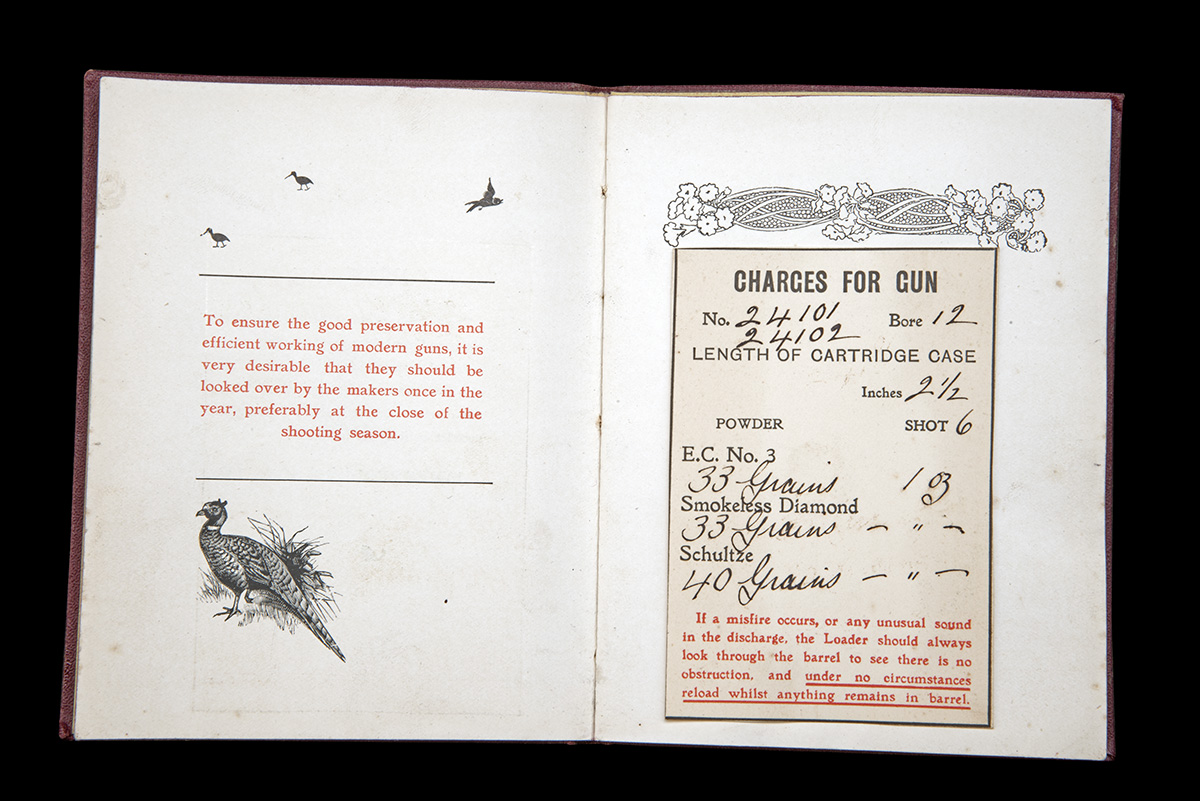 To ensure the good preservation and
efficient working of modern guns, it is
very desirable that they should be
looked over by the makers once in the
year, preferably at the close of the
shooting season.
CHARGES FOR GUN
No. 24101 Bore 12
24102
LENGTH OF CARTRIDGE CASE
Inches 2 1/2
POWDER SHOT 6
E.C. No. 3
33 Grains 1
Smokeless Diamond
33 Grains — " —
Schultze
40 Grains — " —
If a misfire occurs, or any unusual sound
in the discharge, the Loader should always
look through the barrel to see there is no
obstruction, and under no circumstances
reload whilst anything remains in barrel.